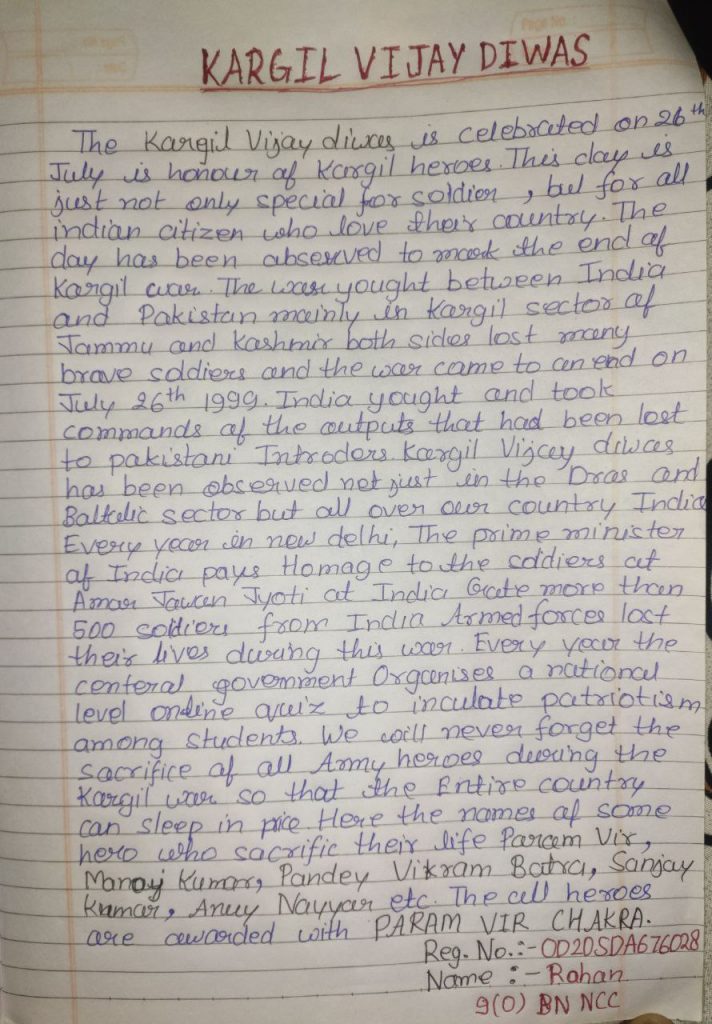 KARGIL VIJAY DIWAS
The Kargil Vijay diwas is celebrated on 26th
July is honour of Kargil heroes. This day is
just not only special for soldier, but for all
indian citizen who love their country. The
day has been observed to mark the end of
Kargil war. The war yought between India
and Pakistan mainly in Kargil sector of
Jammu and Kashmir both sides lost many
brave soldiers and the war came to an end on
July 26th 1999. India yought and took
commands of the outputs that had been lost
to pakistani Introders. Kargil Vijay diwas
has been observed not just in the Dras and
Baltalic sector but all over our country India
Every year in new delhi, The prime minister
of India pays Homage to the soldiers at
Amar Jawan Jyoti at India Gate more than
500 soldiers from India Armed forces lost
their lives during this war. Every year the
centeral government Organises a national
level online quiz to inculate patriotism
among students. We will never forget the
sacrifice of all Army heroes during the
Kargil war so that the Entire country
can sleep in pice. Here the names of some
hero who sacrific their life Param Vir,
Manoj Kumar, Pandey Vikram Batra, Sanjay
Kumar, Anuy Nayyar etc. The all heroes
are awarded with PARAM VIR CHAKRA.
Reg. No.:- OD20SDA676028
Name :- Rohan
9(O) BN NCC